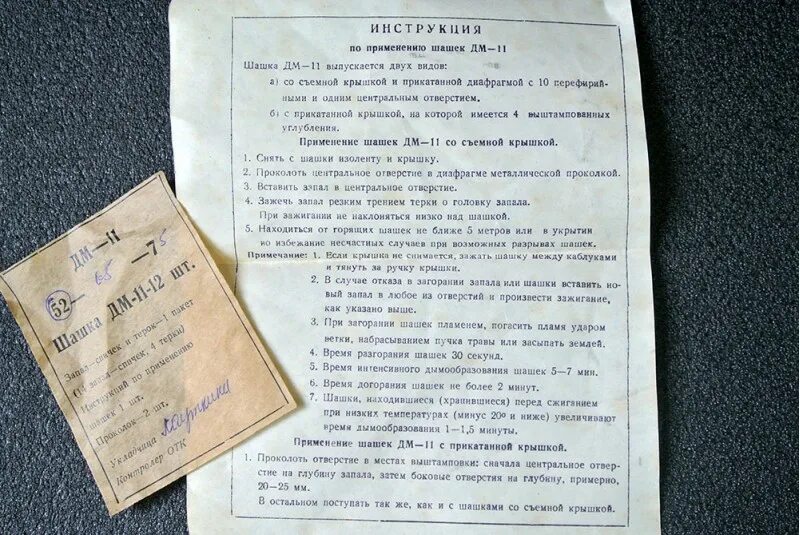 ИНСТРУКЦИЯ
по применению шашек ДМ—11
Шашка ДМ—11 выпускается двух видов:
а) со съемной крышкой и прикатанной диафрагмой с 10 перефирий-
ными и одним центральным отверстием.
б) с прикатанной крышкой, на которой имеется 4 выштампованных
углубления.
Применение шашек ДМ—11 со съемной крышкой.
1. Снять с шашки изоленту и крышку.
2. Проколоть центральное отверстие в диафрагме металлической проколкой.
3. Вставить запал в центральное отверстие.
4. Зажечь запал резким трением терки о головку запала.
При зажигании не наклоняться низко над шашкой.
5. Находиться от горящих шашек не ближе 5 метров или в укрытии
во избежание несчастных случаев при возможных разрывах шашек.
Примечание: 1. Если крышка не снимается, зажать шашку между каблуками
и тянуть за ручку крышки.
2. В случае отказа в загорании запала или шашки вставить но-
вый запал в любое из отверстий и произвести зажигание,
как указано выше.
3. При загорании шашек пламенем, погасить пламя ударом
ветки, набрасыванием пучка травы или засыпать землей.
4. Время разгорания шашек 30 секунд.
5. Время интенсивного дымообразования шашек 5—7 мин.
6. Время догорания шашек не более 2 минут.
7. Шашки, находившиеся (хранившиеся) перед сжиганием
при низких температурах (минус 20° и ниже) увеличивают
время дымообразования 1—1,5 минуты.
Применение шашек ДМ—11 с прикатанной крышкой.
1. Проколоть отверстие в местах выштамповки: сначала центральное отвер-
стие на глубину запала, затем боковые отверстия на глубину, примерно,
20—25 мм.
В остальном поступать так же, как и с шашками со съемной крышкой.
ДМ—11
52— 65 —75
Шашка ДМ-11-12 шт.
Запал—спичек и терок—1 пакет
запал—спичек, 4 терки)
Инструкций по применению
шашек 1 шт.
Проколок—2 шт.
Укладчица
Контролер ОТК